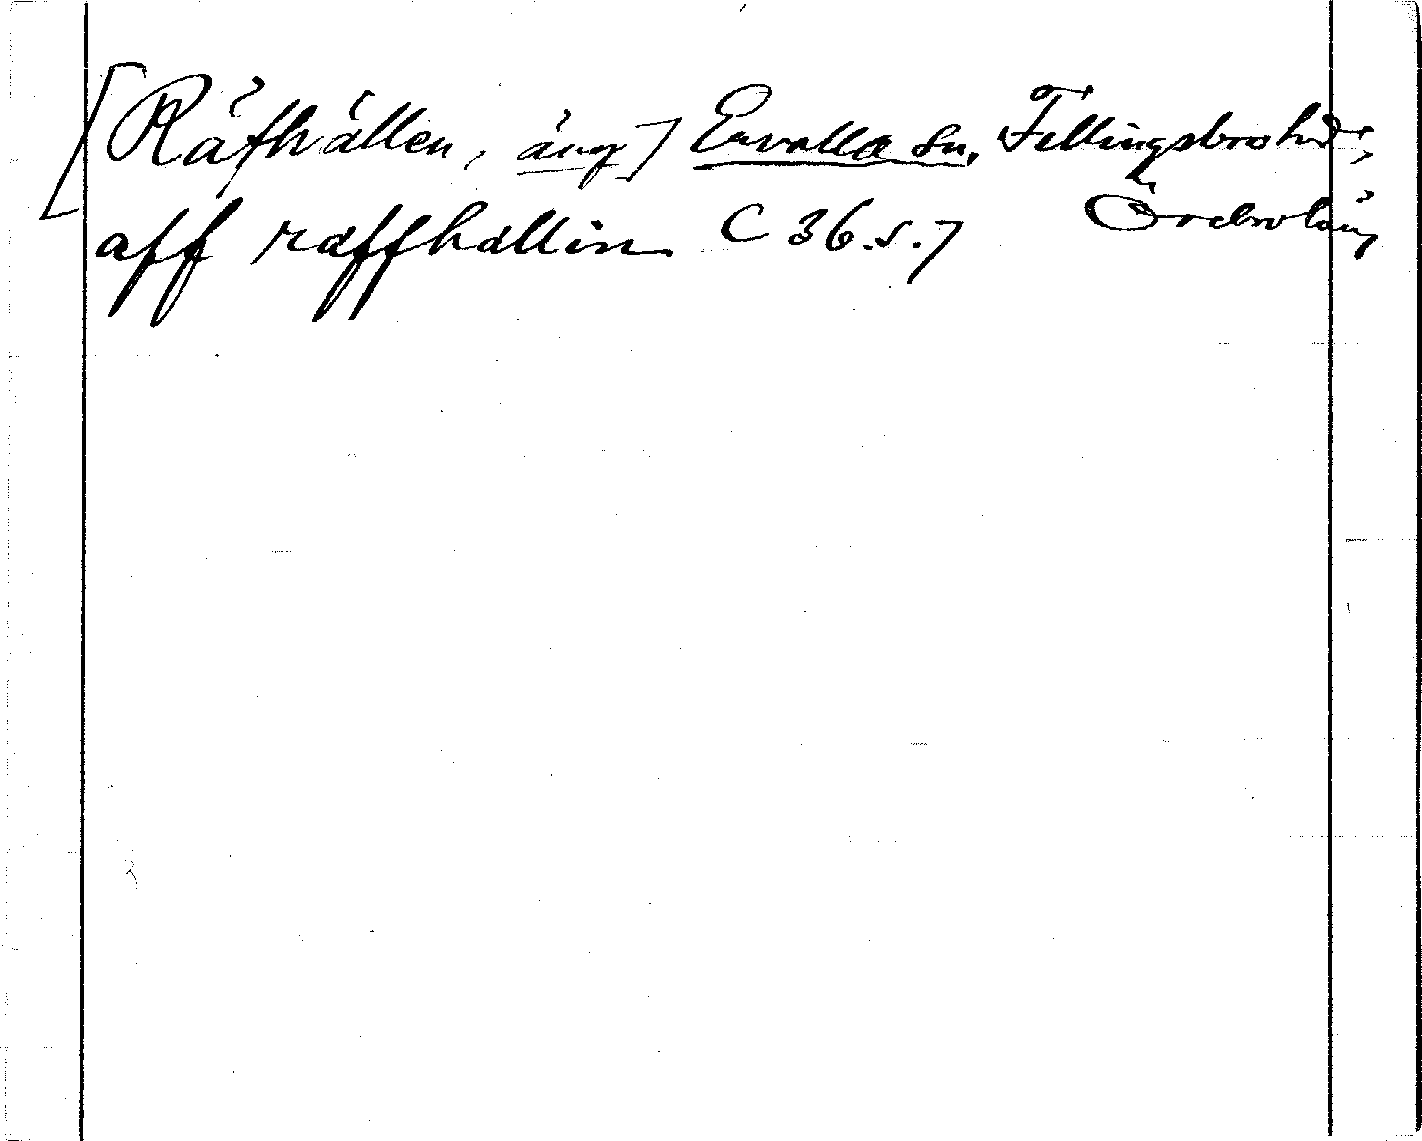 [Räfhällen, äng] Ervalla sn, Fellingsbro hd,
aff ræffhællin C 36.s.7 Örebro län,